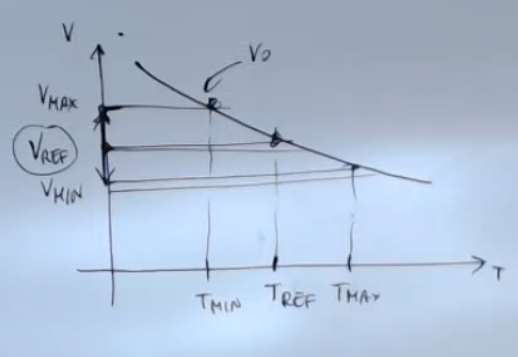 V
V0
VMAX
VREF
VMIN
TMIN TREF TMAX
T